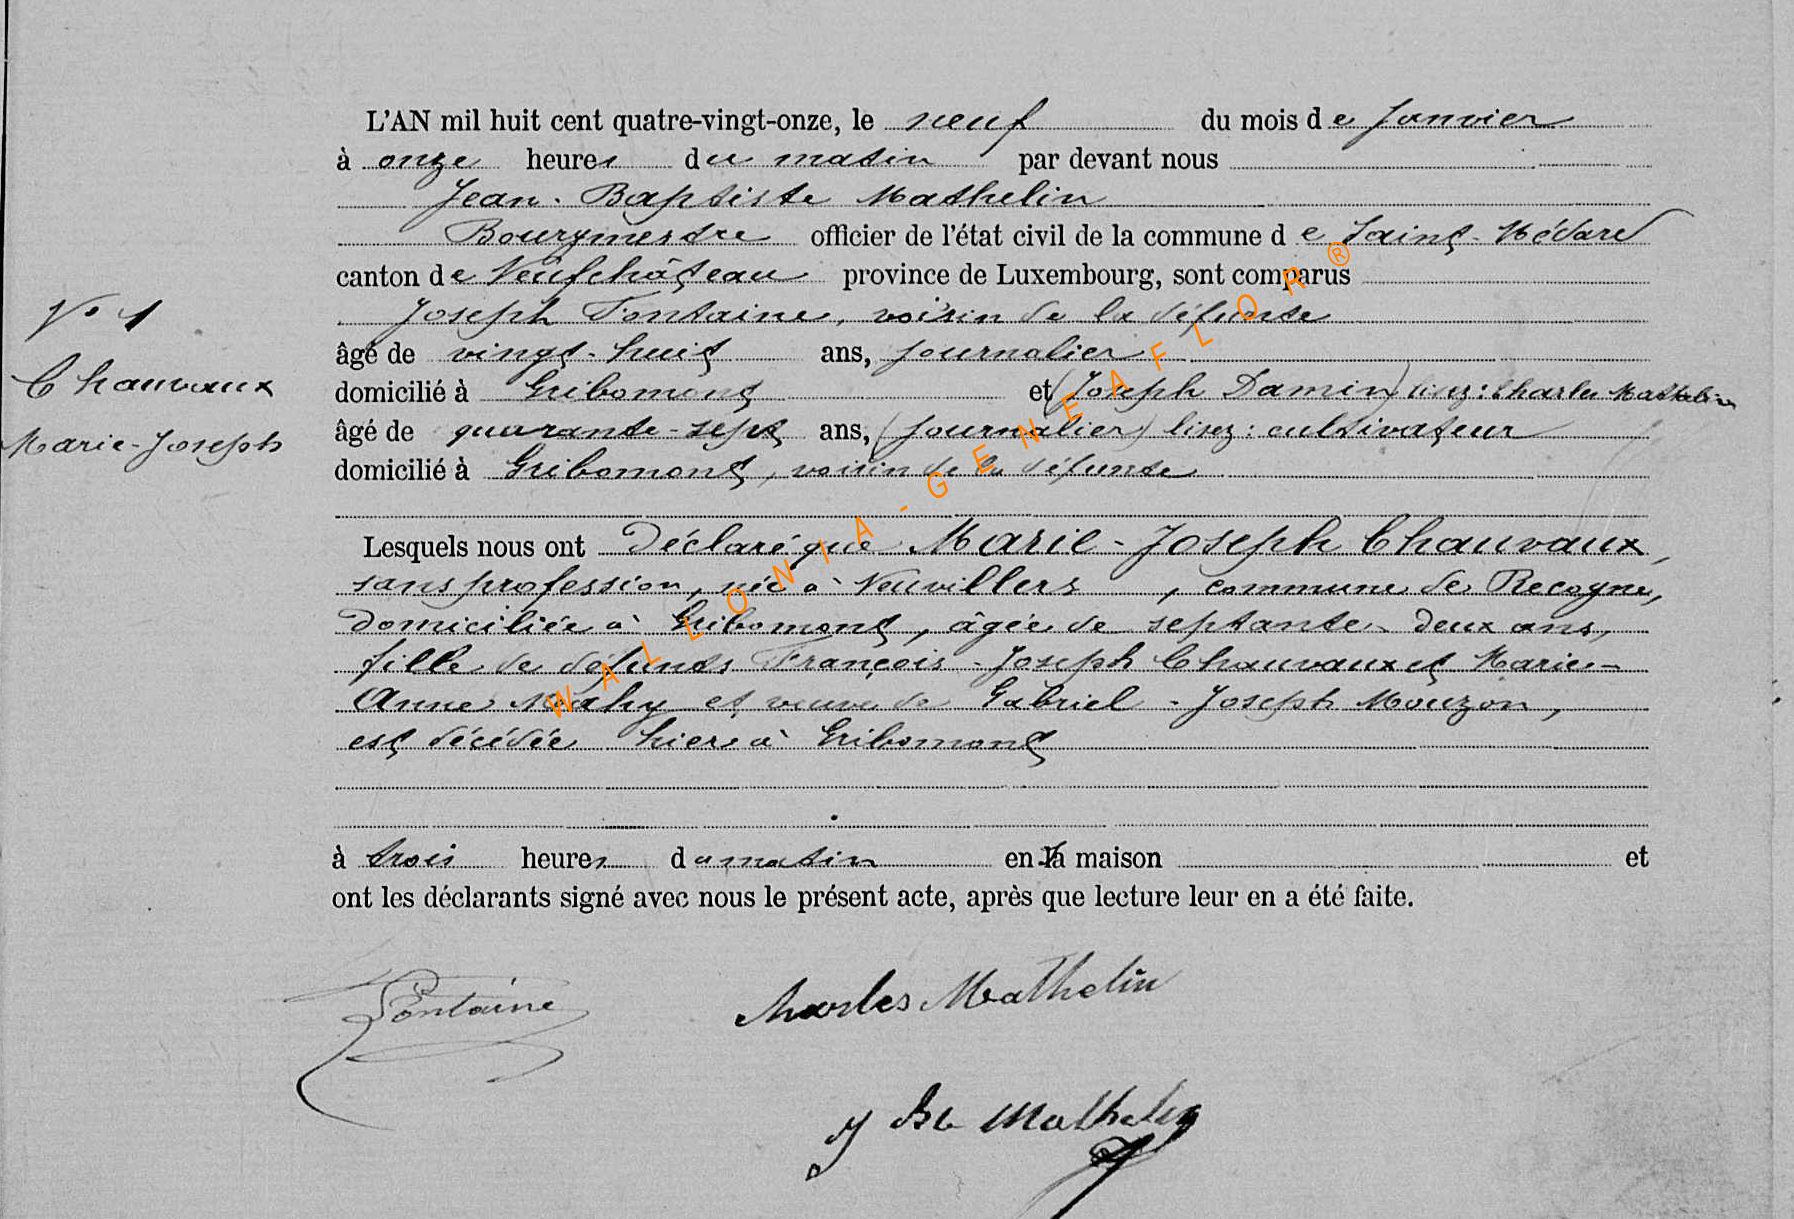 L'AN mil huit cent quatre-vingt-onze, le neuf du mois de Janvier
à onze heures du matin par devant nous
Jean-Baptiste Mathelin
Bourgmestre officier de l'état civil de la commune de Saint-Médard
canton de Neufchâteau province de Luxembourg, sont comparus
Joseph Fontaine, voisin de la défunte
âgé de vingt-huit ans, journalier
domicilié à Gribomont et (Joseph Damin) lisez: Charles Mathelin
âgé de quarante-sept ans, (journalier) lisez: cultivateur
domicilié à Gribomont, voisin de la défunte
N° 1
Chauvaux
Marie-Joseph
Lesquels nous ont déclaré que Marie-Joseph Chauvaux,
sans profession, née à Neuvillers, commune de Recogne,
domiciliée à Gribomont, âgée de septante-deux ans,
fille de défunts François-Joseph Chauvaux et Marie-
Anne Mahy et veuve de Gabriel-Joseph Mouzon,
est décédée hier à Gribomont
à trois heures du matin en sa maison et
ont les déclarants signé avec nous le présent acte, après que lecture leur en a été faite.
Fontaine
Charles Mathelin
J Bte Mathelin
WALLONIA-GENEAFLOR®